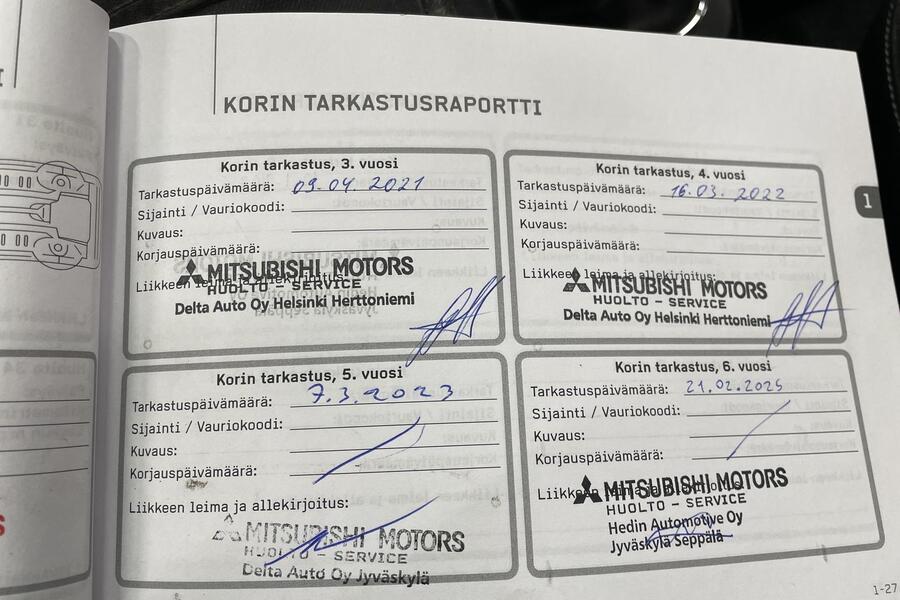 KORIN TARKASTUSRAPORTTI
Korin tarkastus, 3. vuosi
Tarkastuspäivämäärä: 09.04.2021
Sijainti / Vauriokoodi:
Kuvaus:
Korjauspäivämäärä:
Liikkeen leima ja allekirjoitus:
MITSUBISHI MOTORS
HUOLTO - SERVICE
Delta Auto Oy Helsinki Herttoniemi
Korin tarkastus, 4. vuosi
Tarkastuspäivämäärä: 16.03.2022
Sijainti / Vauriokoodi:
Kuvaus:
Korjauspäivämäärä:
Liikkeen leima ja allekirjoitus:
MITSUBISHI MOTORS
HUOLTO - SERVICE
Delta Auto Oy Helsinki Herttoniemi
1
Korin tarkastus, 5. vuosi
Tarkastuspäivämäärä: 7.3.2023
Sijainti / Vauriokoodi:
Kuvaus:
Korjauspäivämäärä:
Liikkeen leima ja allekirjoitus:
MITSUBISHI MOTORS
HUOLTO - SERVICE
Delta Auto Oy Jyväskylä
Korin tarkastus, 6. vuosi
Tarkastuspäivämäärä: 21.02.2025
Sijainti / Vauriokoodi:
Kuvaus:
Korjauspäivämäärä:
Liikkeen leima ja allekirjoitus:
MITSUBISHI MOTORS
HUOLTO - SERVICE
Hedin Automotive Oy
Jyväskylä Seppälä
1-27